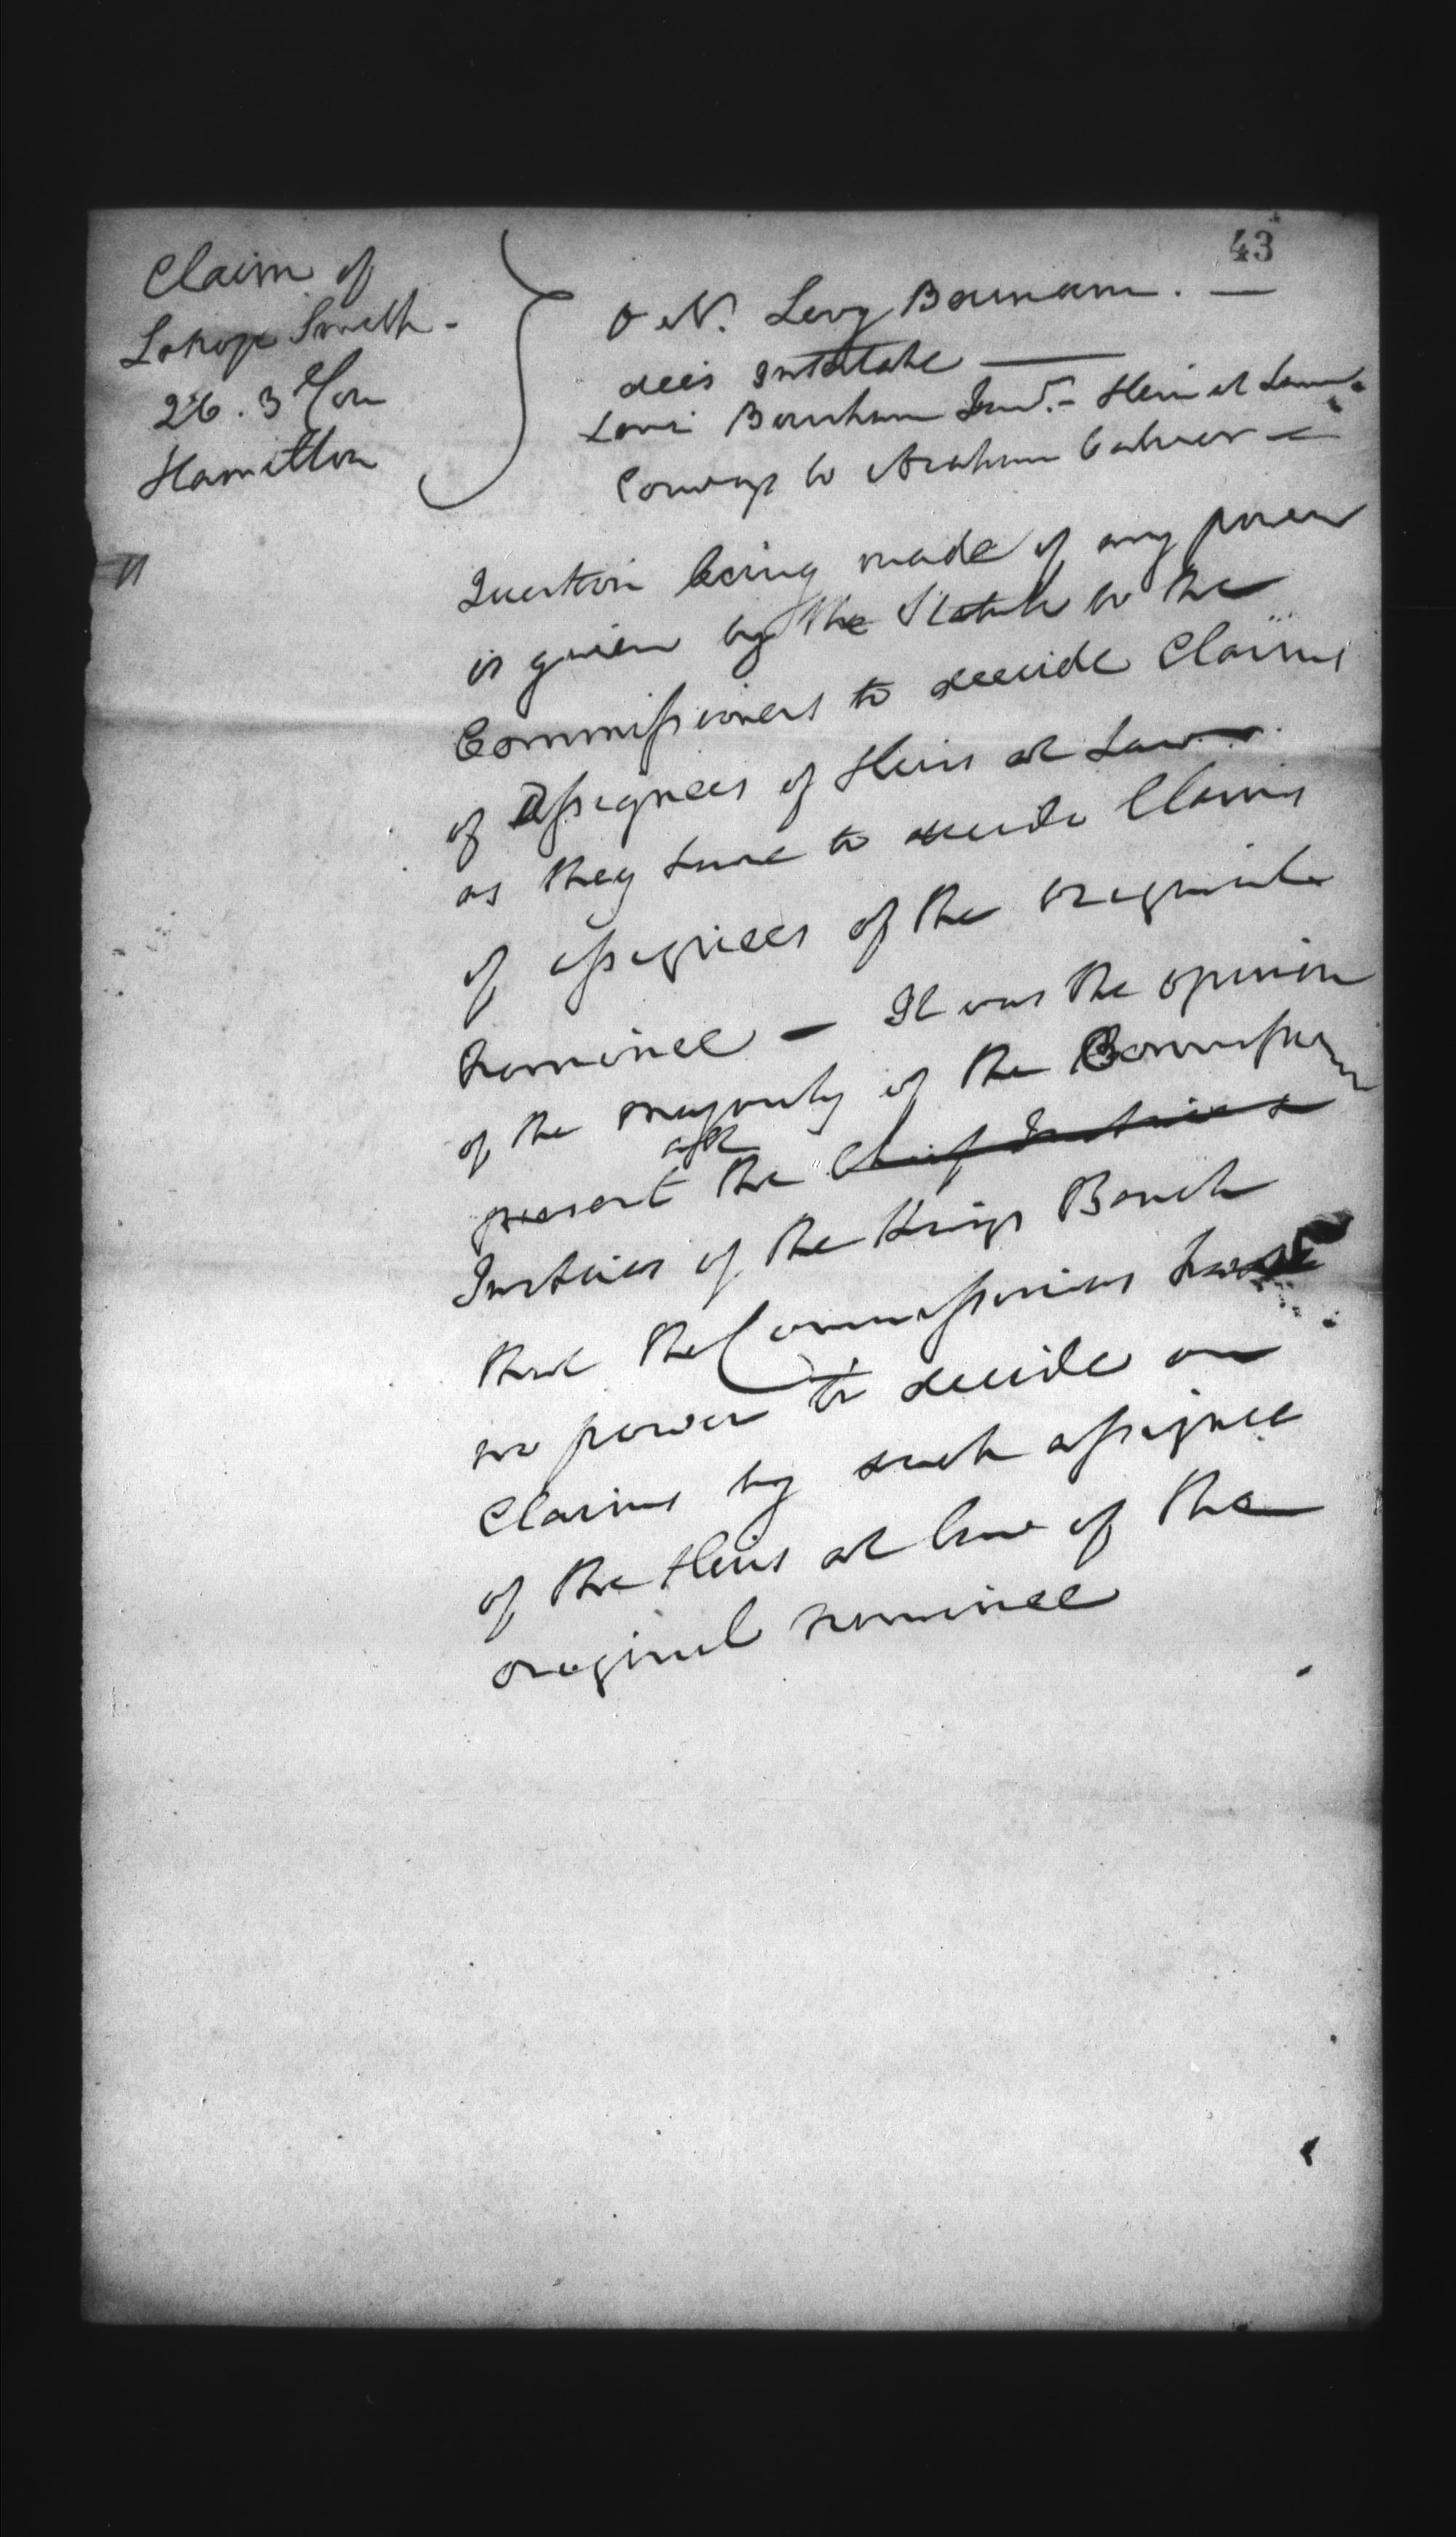 43
Claim of
Smith -
26. 3 Con
Hamilton
O N. Levy Bournam. —
dec'd intestate —
Bournham Jun.r - Heir at Law
Conveys to Abraham
Question being made if any power
is given by the Statute to the
Commissioners to decide Claims
of Assignees of Heirs at Law
as they have to decide Claims
of assignees of the original
Nominee — It was the opinion
of the majority of the Commissioners
present the Chief Justice &
Justices of the Kings Bench
that the Commissioners have
no power to decide on
Claims by such assignee
of the Heirs at law of the
original nominee